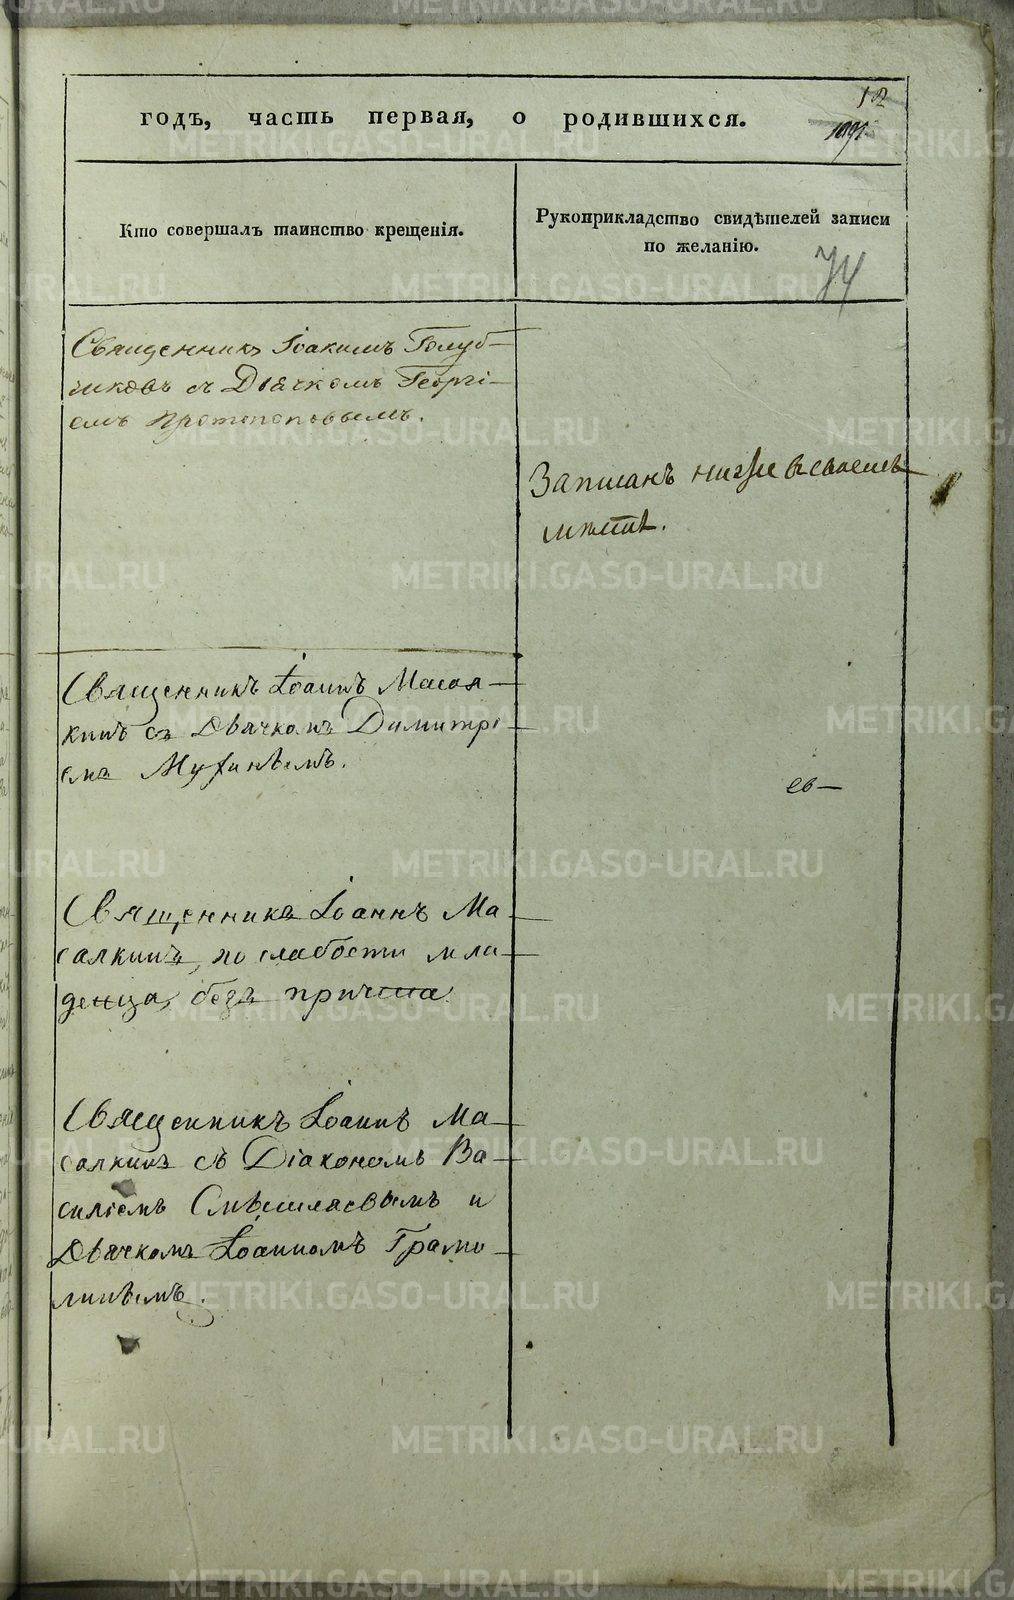 годъ, часть первая, о родившихся.
12
Кто совершалъ таинство крещенія.
Рукоприкладство свидѣтелей записи
по желанію.
74
Священникъ Іоакимъ Голуб-
чиковъ съ Дьячкомъ Георгі-
емъ Протопоповымъ.
Записанъ ниже в своемъ
мѣстѣ.
Священникъ Іоаннъ Масал-
кинъ съ Дьячкомъ Димитрі-
емъ
Священникъ Іоаннъ Ма-
салкинъ, по слабости мла-
денца, безъ причта
Священникъ Іоаннъ Ма-
салкинъ съ Діакономъ Ва-
силіемъ и
Дьячкомъ Іоанномъ Грамо-
линымъ.
METRIKI.GASO-URAL.RU